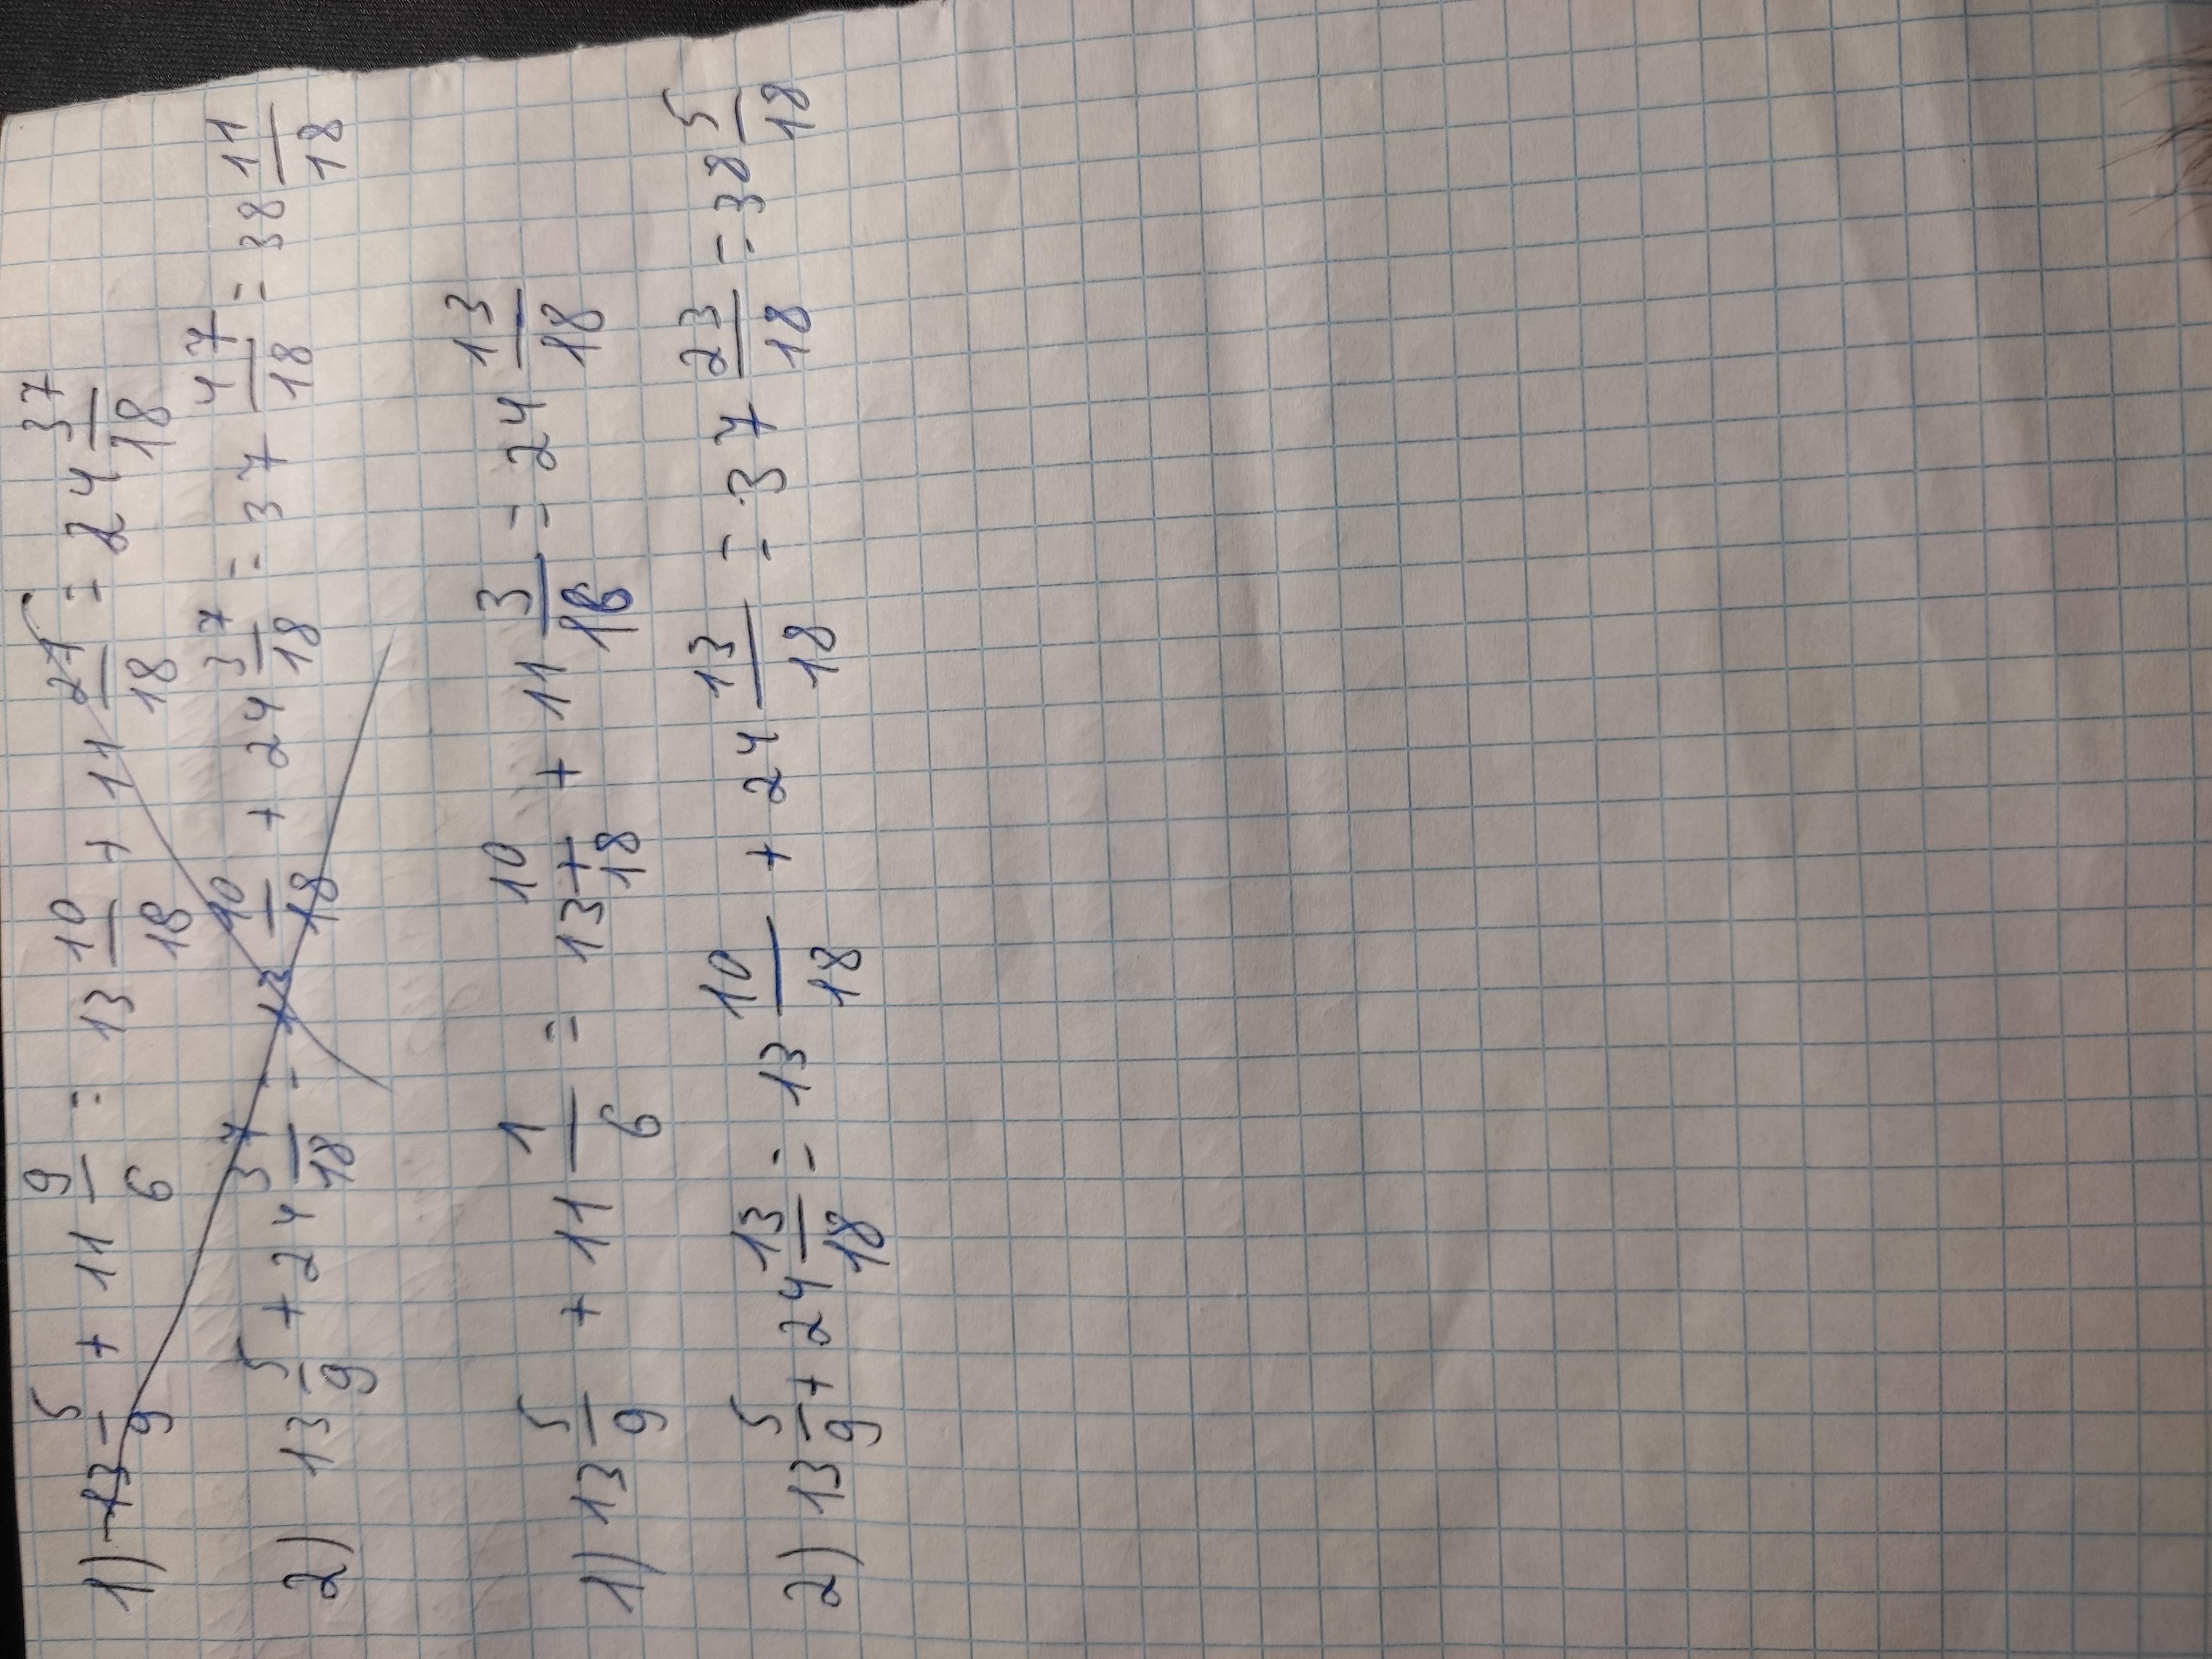 1) 13 5/9 + 11 9/6 = 13 10/18 + 11 27/18 = 24 37/18
2) 13 5/9 + 24 37/18 = 13 10/18 + 24 37/18 = 37 47/18 = 38 11/18
1) 13 5/9 + 11 1/6 = 13 10/18 + 11 3/18 = 24 13/18
2) 13 5/9 + 24 13/18 = 13 10/18 + 24 13/18 = 37 23/18 = 38 5/18